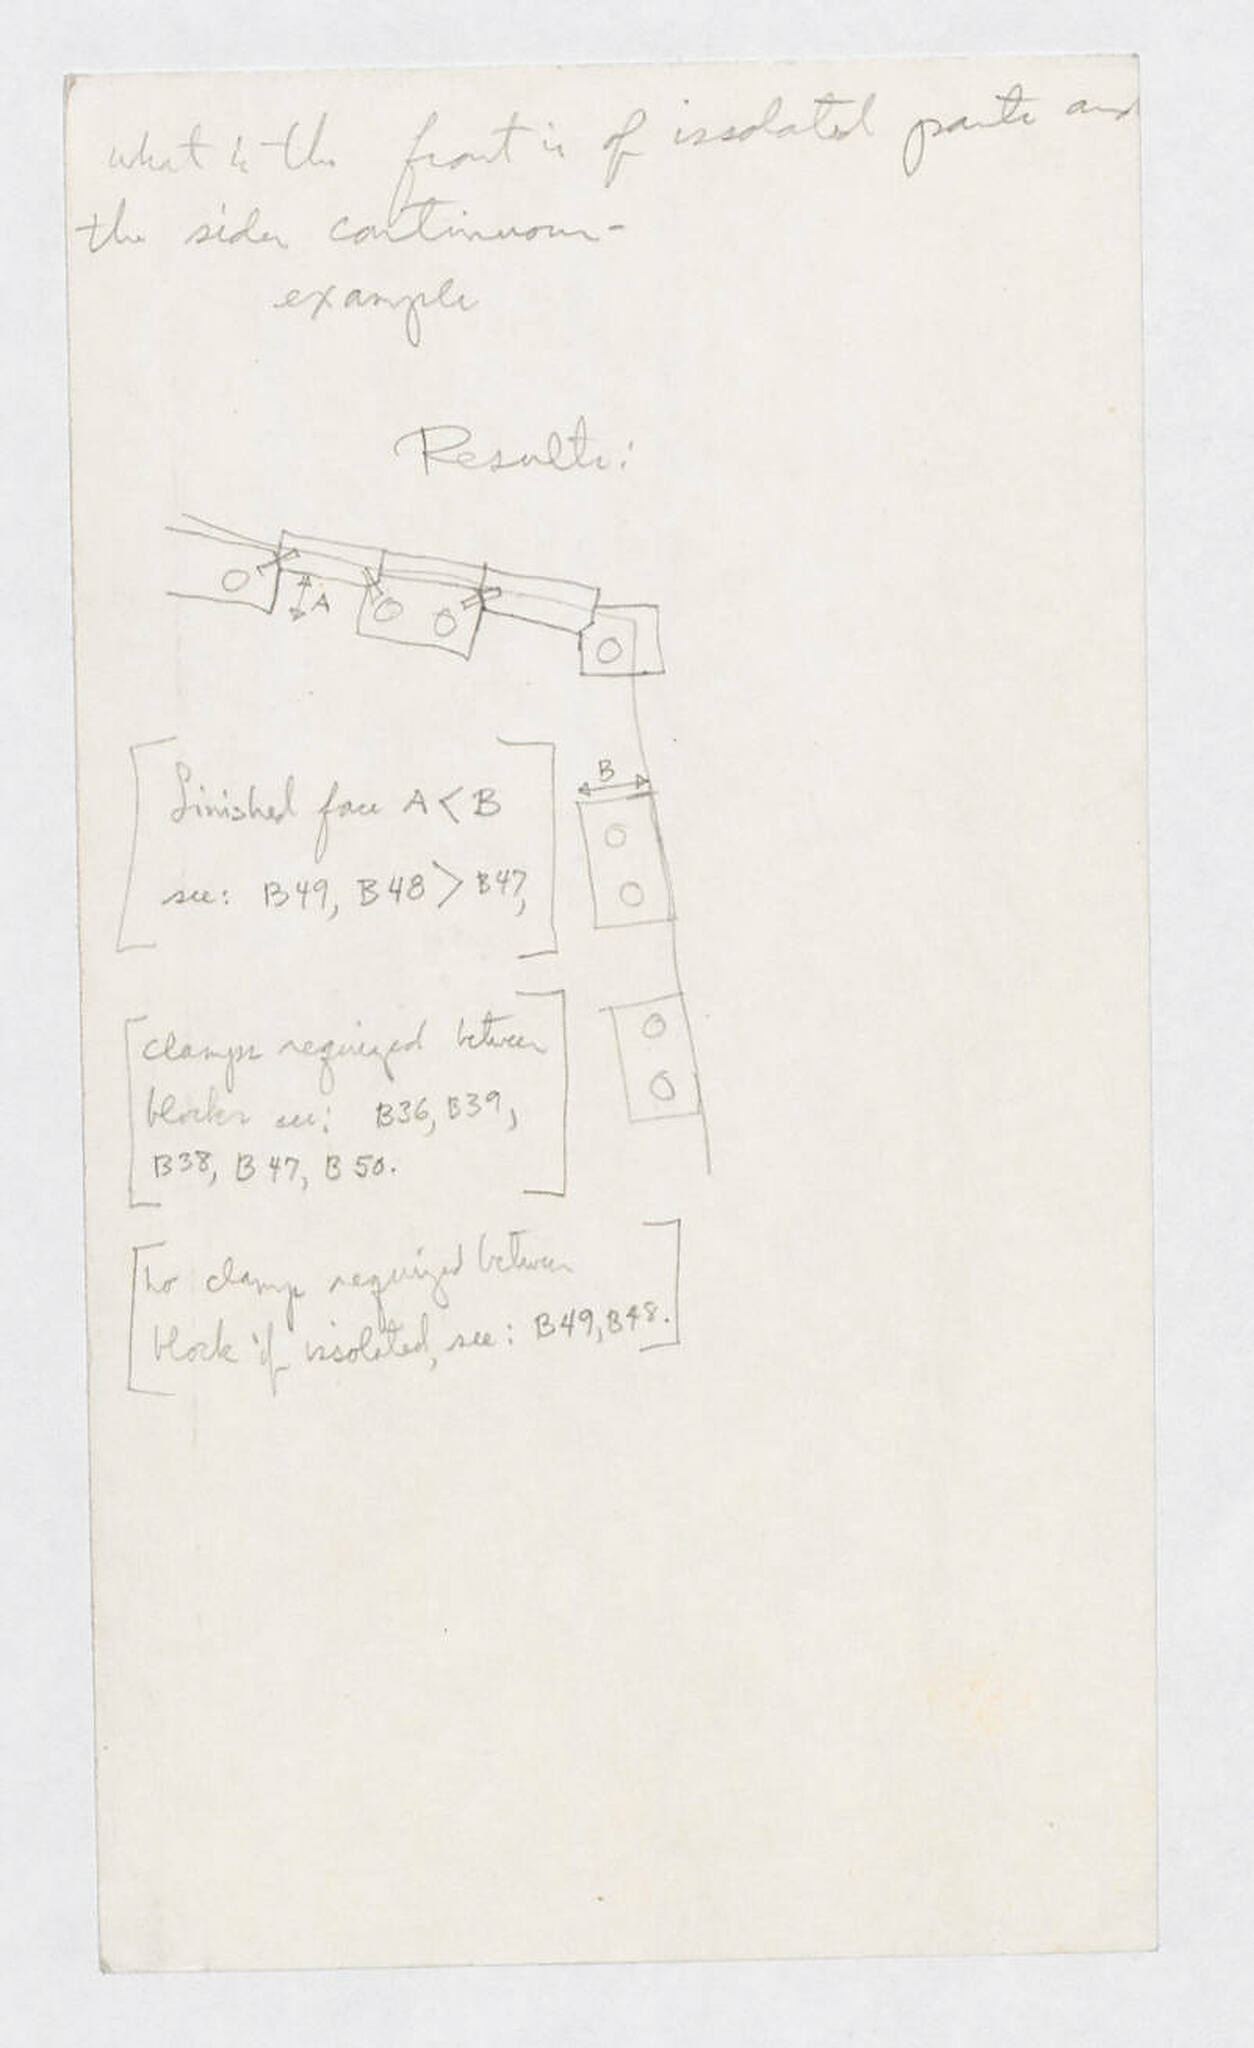 what is the front is of issolated parts and
the sides continuous -
example
Results:
A
B
finished face A < B
see: B49, B48 > B47,
clamps required between
blocks see: B36, B39,
B38, B47, B50.
no clamp required between
block if issolated, see: B49, B48.